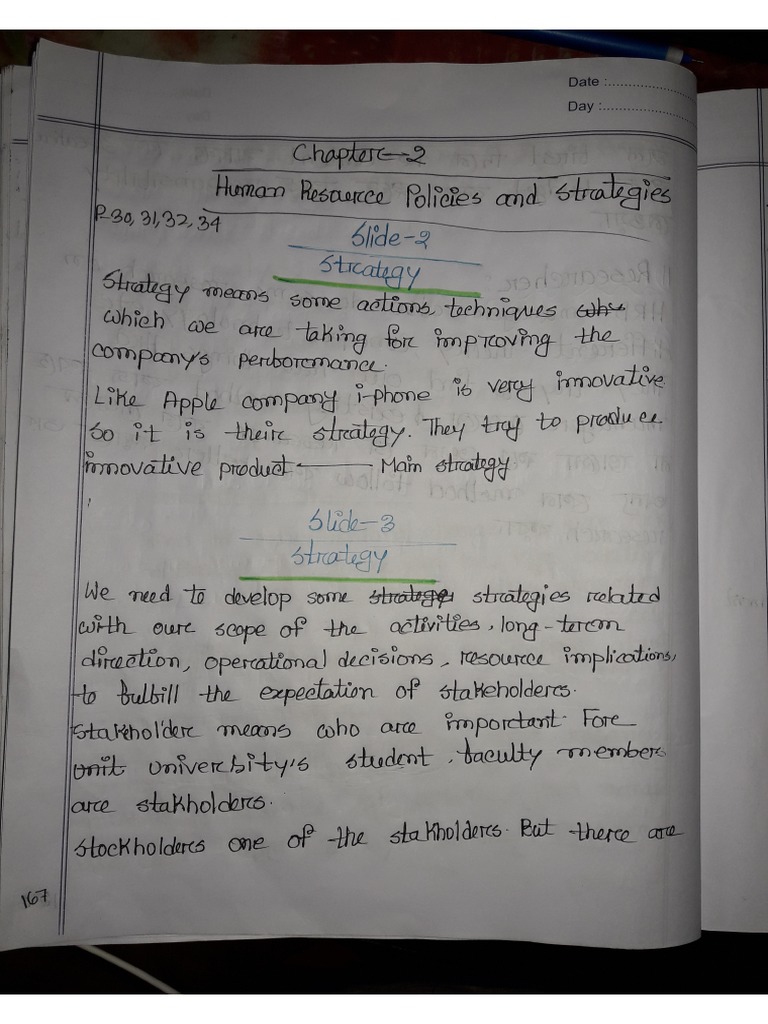 Date :
Day :
Chapter-2
Human Resource Policies and Strategies
P-30, 31, 32, 34
Slide-2
Strategy
Strategy means some actions, techniques
which we are taking for improving the
company's performance.
Like Apple company i-phone is very innovative.
So it is their strategy. They try to produce
innovative product ← Main strategy
Slide-3
Strategy
We need to develop some strategies related
with our scope of the activities, long-term
direction, operational decisions, resource implications,
to fulfill the expectation of stakeholders.
Stakholder means who are important. For
university's student, faculty members
are stakholders.
Stockholders one of the stakholders. But there are
167